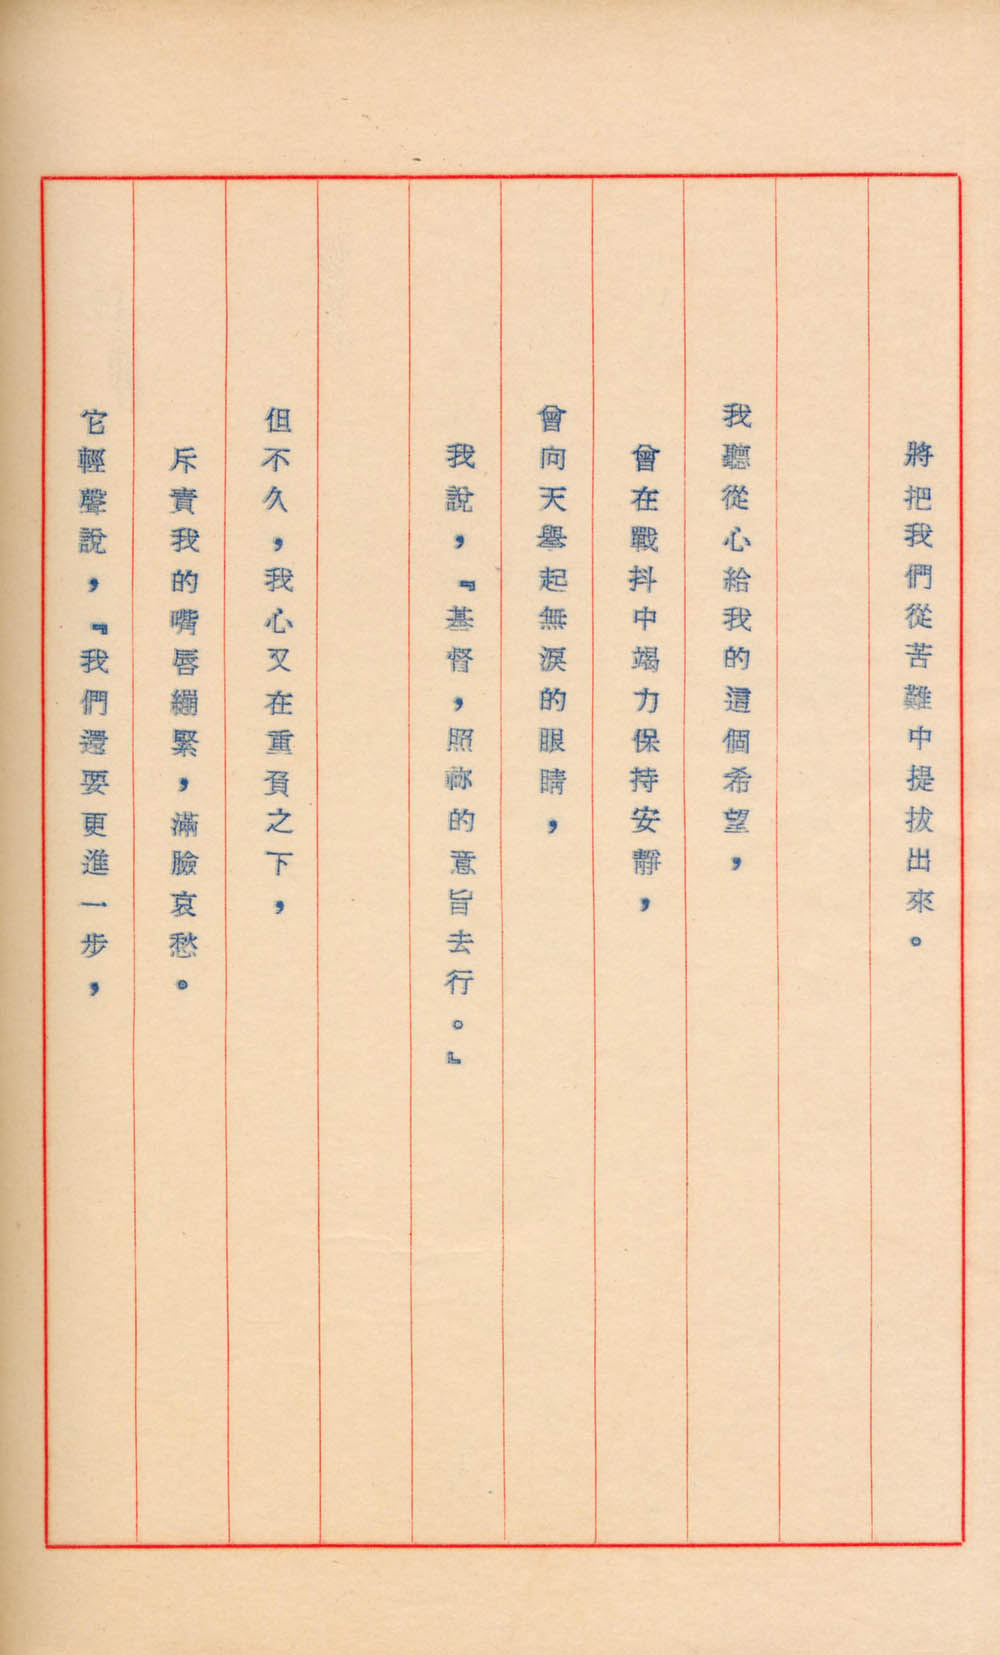 將把我們從苦難中提拔出來。
我聽從心給我的這個希望，
曾在戰抖中竭力保持安靜，
曾向天舉起無淚的眼睛，
我說，『基督，照祢的意旨去行。』
但不久，我心又在重負之下，
斥責我的嘴唇繃緊，滿臉哀愁。
它輕聲說，『我們還要更進一步，